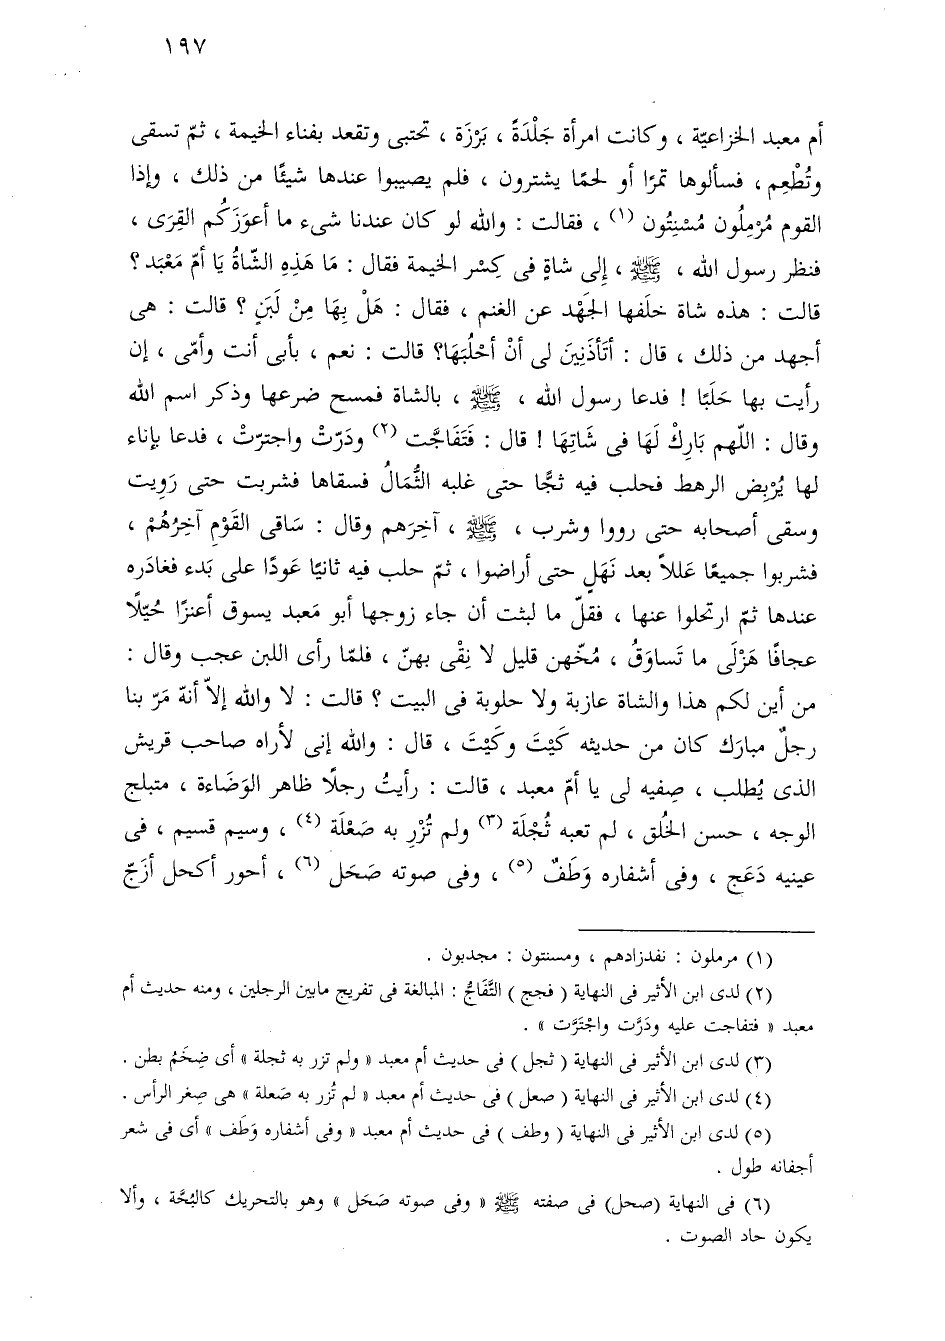 ١٩٧
أم معبد الخزاعيّة ، وكانت امرأة جَلْدَةً ، بَرْزَة ، تحتبى وتقعد بفناء الخيمة ، ثمّ تسقى
وتُطْعِم ، فسألوها تمرًا أو لحمًا يشترون ، فلم يصيبوا عندها شيئًا من ذلك ، وإذا
القوم مُرْمِلُون مُسْنِتُون (١) ، فقالت : والله لو كان عندنا شىء ما أعوَزَكُم القِرَى ،
فنظر رسول الله ، ﷺ ، إلى شاةٍ فى كِسْر الخيمة فقال : مَا هَذِهِ الشّاةُ يَا أمّ مَعْبَد ؟
قالت : هذه شاة خلَفها الجَهْد عن الغنم ، فقال : هَلْ بِهَا مِنْ لَبَنٍ ؟ قالت : هى
أجهد من ذلك ، قال : أتَأذَنِينَ لى أنْ أحْلُبَهَا؟ قالت : نعم ، بأبى أنت وأمّى ، إن
رأيت بها حَلَبًا ! فدعا رسول الله ، ﷺ ، بالشاة فمسح ضرعها وذكر اسم الله
وقال : اللّهم بَارِكْ لَهَا فى شَاتِهَا ! قال : فَتَفَاجَّت (٢) ودَرّتْ واجترّتْ ، فدعا بإناء
لها يُرْبِض الرهط فحلب فيه ثجًّا حتى غلبه الثُّمَالُ فسقاها فشربت حتى رَوِيت
وسقى أصحابه حتى رووا وشرب ، ﷺ ، آخِرَهم وقال : سَاقى القَوْمِ آخِرُهُمْ ،
فشربوا جميعًا عَللاً بعد نَهَلٍ حتى أراضوا ، ثمّ حلب فيه ثانيًا عَودًا على بَدء فغادَره
عندها ثمّ ارتحلوا عنها ، فقلّ ما لبثت أن جاء زوجها أبو مَعبد يسوق أعنزًا حُيّلًا
عجافًا هَزْلَى ما تَساوَقُ ، مُخّهن قليل لا نِقْى بهنّ ، فلمّا رأى اللبن عجب وقال :
من أين لكم هذا والشاة عازبة ولا حلوبة فى البيت ؟ قالت : لا والله إلاّ أنهّ مَرّ بنا
رجلٌ مبارَك كان من حديثه كَيْتَ وكَيْتَ ، قال : والله إنى لأراه صاحب قريش
الذى يُطلب ، صِفيه لى يا أمّ معبد ، قالت : رأيتُ رجلًا ظاهر الوَضَاءة ، متبلج
الوجه ، حسن الخُلق ، لم تعبه ثُجْلَة (٣) ولم تُزْرِ به صَعْلَة (٤) ، وسيم قسيم ، فى
عينيه دَعَج ، وفى أشفاره وَطَفٌ (٥) ، وفى صوته صَحَل (٦) ، أحور أكحل أزَجّ
(١) مرملون : نفدزادهم ، ومسنتون : مجدبون .
(٢) لدى ابن الأثير فى النهاية ( فجج ) التَّفَاجُّ : المبالغة فى تفريج مابين الرجلين ، ومنه حديث أم
معبد « فتفاجت عليه ودَرَّت واجْتَرَّت » .
(٣) لدى ابن الأثير فى النهاية ( ثجل ) فى حديث أم معبد « ولم تزر به ثجلة » أى ضِخَمُ بطن .
(٤) لدى ابن الأثير فى النهاية ( صعل ) فى حديث أم معبد « لم تُزر به صَعلة » هى صِغر الرأس .
(٥) لدى ابن الأثير فى النهاية ( وطف ) فى حديث أم معبد « وفى أشفاره وَطَف » أى فى شعر
أجفانه طول .
(٦) فى النهاية (صحل) فى صفته ﷺ « وفى صوته صَحَل » وهو بالتحريك كالبُحَّة ، وألا
يكون حاد الصوت .